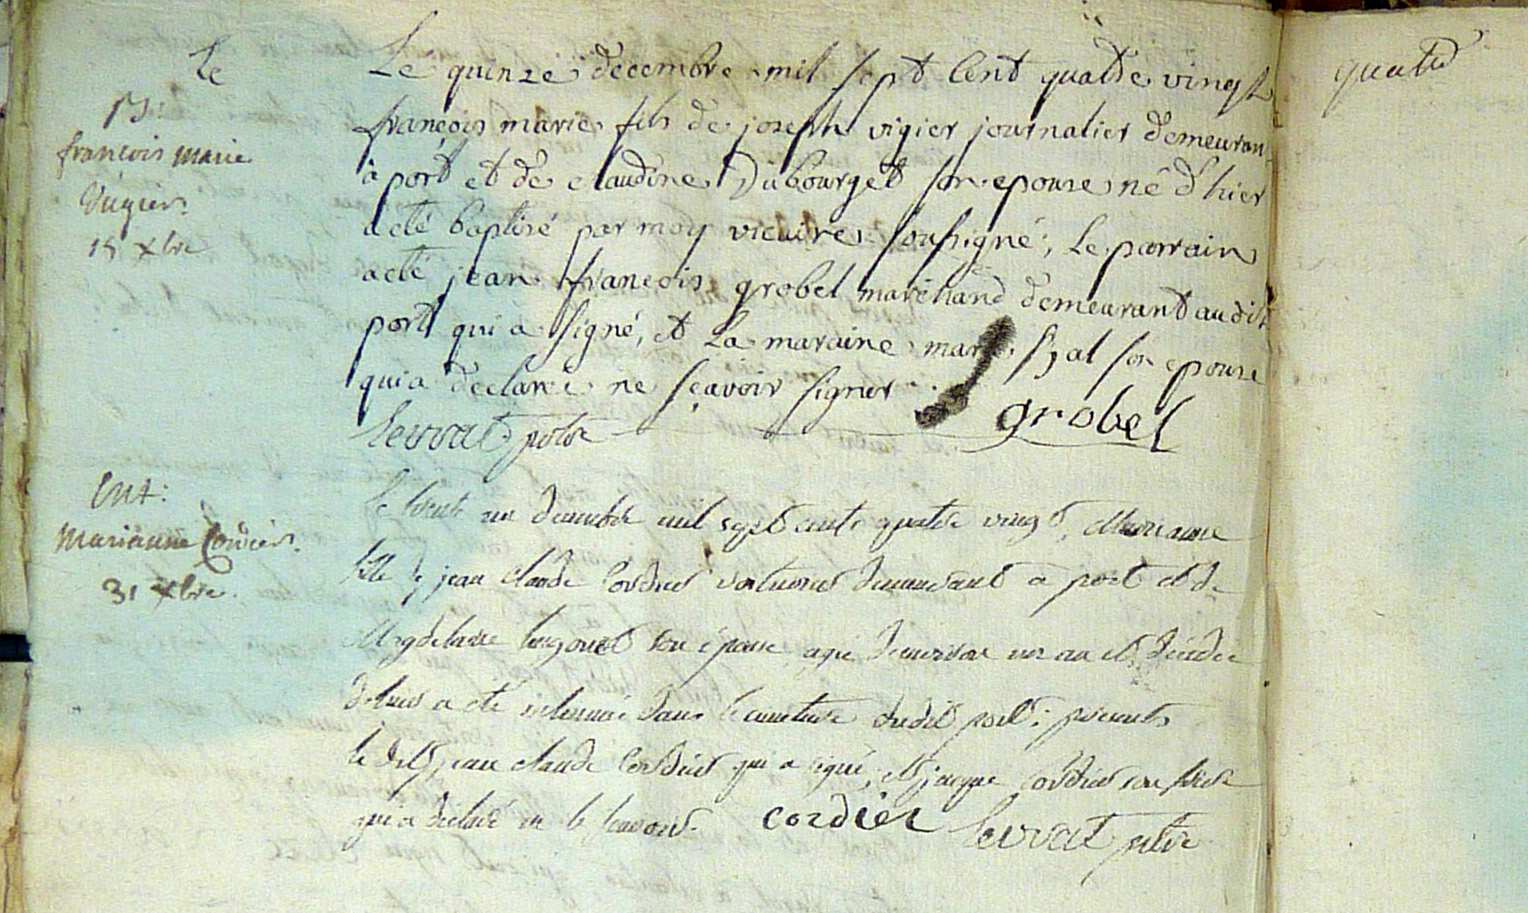 Le
Le quinze decembre mil sept cent quatre vingt
quatre
B:
françois marie fils de joseph vigier journalier demeurant
françois marie
à port et de claudine Dubourget son epouse né d'hier
Vugier.
a eté baptisé par moy vicaire soussigné; le parrain
15 xbre
a eté jean françois grobel marchand demeurant audit
port qui a signé, et la maraine marie son epouse
qui a declaré ne sçavoir signer.
grobel
levrat ptre
Ent:
le trente un decembre mil sept cents quatre vingt, Marianne
Marianne Cordier.
fille de jean claude Cordier demeurant a port et de
31 xbre.
Magdelaine son épouse agée d'environ un an et décédée
d'hier a eté inhumée dans le cimetiere dudit port; presents
le dit jean claude Cordier qui a signé, et jacque Cordier son frere
qui a declaré ne le sçavoir. cordier levrat ptre